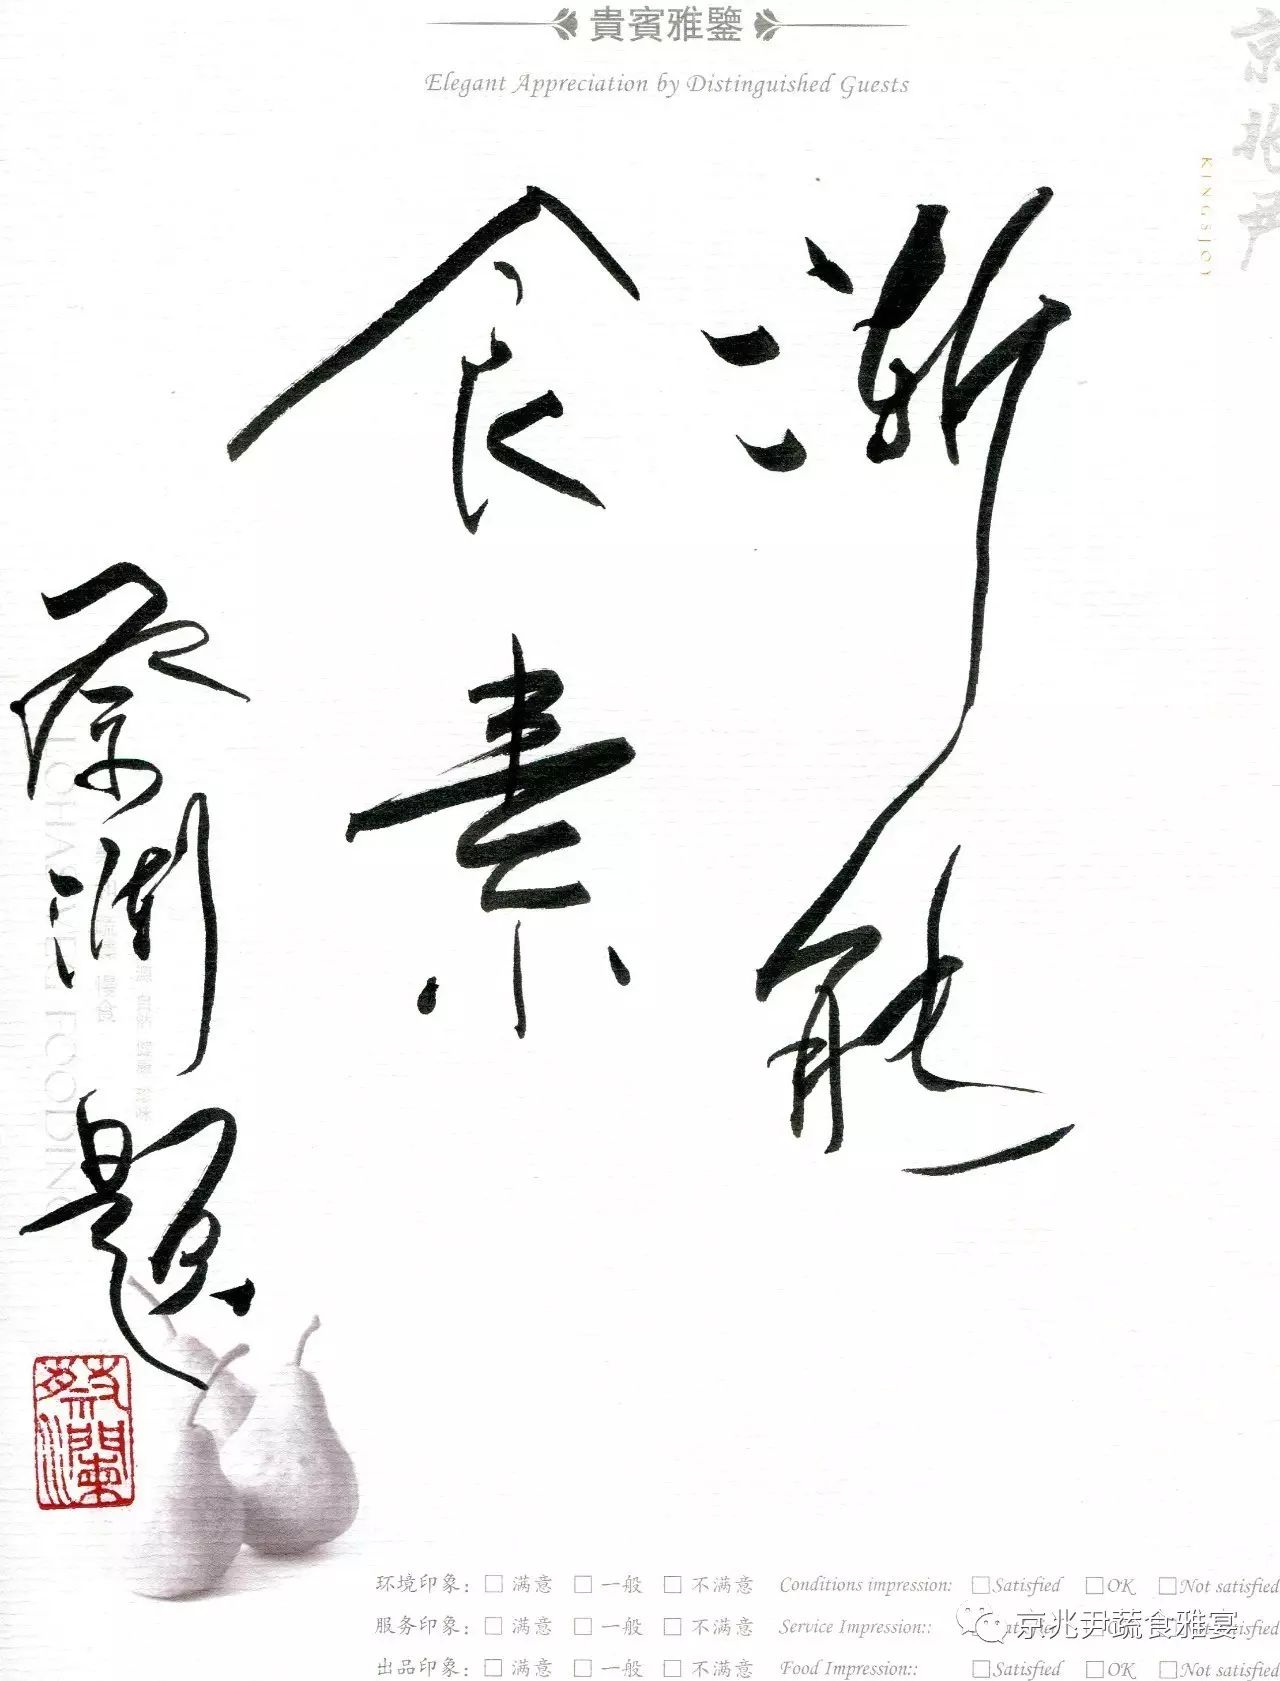 貴賓雅鑒
Elegant Appreciation by Distinguished Guests
京兆尹
KINGSJOY
漸能
食素
蔡瀾題
蔡瀾
慢食
FOODING
环境印象：□ 满意 □ 一般 □ 不满意 Conditions impression: □Satisfied □OK □Not satisfied
服务印象：□ 满意 □ 一般 □ 不满意 Service Impression:: satisfied
出品印象：□ 满意 □ 一般 □ 不满意 Food Impression:: □Satisfied □OK □Not satisfied
京兆尹蔬食雅宴